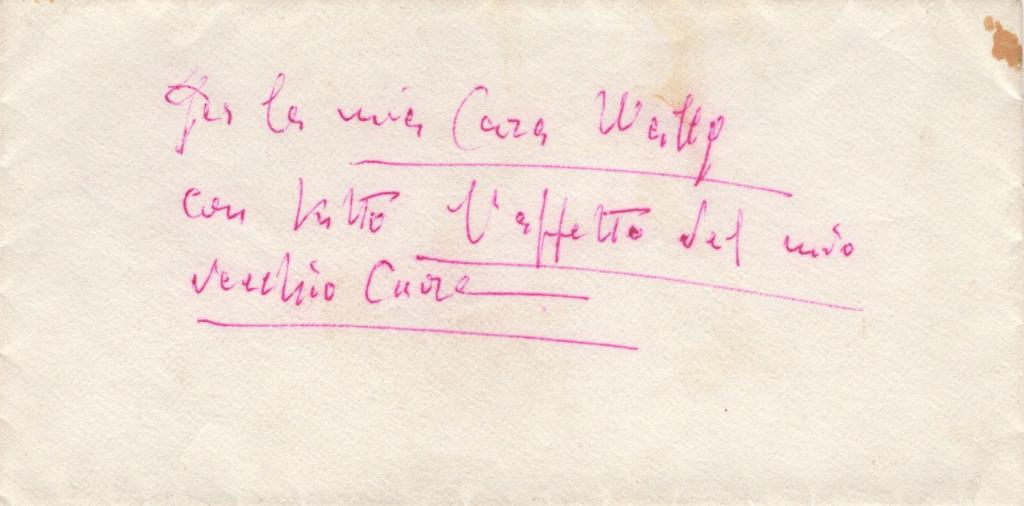 Per la mia Cara Wally
con tutto l'affetto del mio
vecchio Cuore